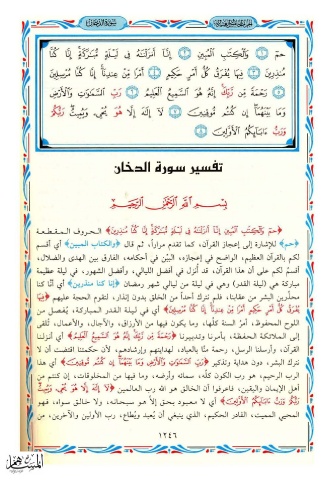 حمٓ ۝١ وَٱلْكِتَٰبِ ٱلْمُبِينِ ۝٢ إِنَّآ أَنزَلْنَٰهُ فِى لَيْلَةٍ مُّبَٰرَكَةٍ إِنَّا كُنَّا
مُنذِرِينَ ۝٣ فِيهَا يُفْرَقُ كُلُّ أَمْرٍ حَكِيمٍ ۝٤ أَمْرًا مِّنْ عِندِنَآ إِنَّا كُنَّا مُرْسِلِينَ
۝٥ رَحْمَةً مِّن رَّبِّكَ إِنَّهُۥ هُوَ ٱلسَّمِيعُ ٱلْعَلِيمُ ۝٦ رَبِّ ٱلسَّمَٰوَٰتِ وَٱلْأَرْضِ
وَمَا بَيْنَهُمَآ إِن كُنتُم مُّوقِنِينَ ۝٧ لَآ إِلَٰهَ إِلَّا هُوَ يُحْىِۦ وَيُمِيتُ رَبُّكُمْ
وَرَبُّ ءَابَآئِكُمُ ٱلْأَوَّلِينَ ۝٨
تفسير سورة الدخان
بِسْمِ اللَّهِ الرَّحْمَٰنِ الرَّحِيمِ
﴿حمٓ وَٱلْكِتَٰبِ ٱلْمُبِينِ إِنَّآ أَنزَلْنَٰهُ فِى لَيْلَةٍ مُّبَٰرَكَةٍ إِنَّا كُنَّا مُنذِرِينَ﴾ الحروف المقطعة
﴿حم﴾ للإشارة إلى إعجاز القرآن، كما تقدم مراراً، ثم قال ﴿والكتاب المبين﴾ أي أقسم
لكم بالقرآن العظيم، الواضح في إعجازه، البيِّن في أحكامه، الفارق بين الهدى والضلال،
أقسمُ لكم على أن هذا القرآن، قد أُنزل في أفضل الليالي، وأفضل الشهور، في ليلة عظيمة
مباركة هي (ليلة القدر) وهي في ليلة من ليالي شهر رمضان ﴿إنا كنا منذرين﴾ أي أنَّا كنا
محذِّرين البشر من عقابنا، فلم نترك أحداً من الخلق بدون إنذار، لتقوم الحجة عليهم ﴿فِيهَا
يُفْرَقُ كُلُّ أَمْرٍ حَكِيمٍ أَمْرًا مِّنْ عِندِنَآ إِنَّا كُنَّا مُرْسِلِينَ﴾ أي في ليلة القدر المباركة، يُفصل من
اللوح المحفوظ، أمرُ السنة كلِّها، وما يكون فيها من الأرزاق، والآجال، والأعمال، تُلقى
إلى الملائكة الحفظة، بأمرنا وتدبيرنا ﴿رَحْمَةً مِّن رَّبِّكَ إِنَّهُۥ هُوَ ٱلسَّمِيعُ ٱلْعَلِيمُ﴾ أي أنزلنا
القرآن، وأرسلنا الرسل، رحمة منَّا بالعباد، لهدايتهم وإرشادهم، لأن حكمتنا اقتضت أن لا
نترك البشر، دون هداية وتذكير ﴿رَبِّ ٱلسَّمَٰوَٰتِ وَٱلْأَرْضِ وَمَا بَيْنَهُمَآ إِن كُنتُم مُّوقِنِينَ﴾ أي هذا
الرب الرحيم، هو رب الكون كلِّه، سمائه وأرضه، وما فيها من المخلوقات، إن كنتم من
أهل الإيمان واليقين، فاعرفوا أن الخالق هو الله رب العالمين ﴿لَآ إِلَٰهَ إِلَّا هُوَ يُحْىِۦ وَيُمِيتُ
رَبُّكُمْ وَرَبُّ ءَابَآئِكُمُ ٱلْأَوَّلِينَ﴾ أي لا معبود بحق إلا هو سبحانه، ولا خالق سواه، فهو
المحيي المميت، القادر الحكيم، الذي ينبغي أن يُعبد ويُطاع، رب الأولين والآخرين، من
١٢٤٦